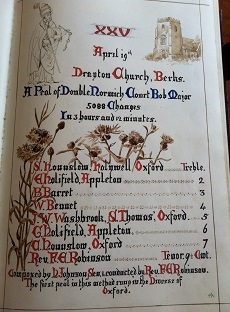 XXV
April 19th
Drayton Church, Berks.
A Peal of Double Norwich Court Bob Major
5088 Changes
In 3 hours and 12 minutes.
S. Hounslow, Holywell, Oxford Treble.
E Holifield, Appleton 2
B Barret 3
W Bennet 4
J. W. Washbrook, S. Thomas', Oxford 5
G Holifield, Appleton 6
C Hounslow, Oxford 7
Rev. F.E. Robinson Tenor. 9½ Cwt.
Composed by Johnson Sen., & conducted by Rev. F.E. Robinson.
The first peal in this method rung in the Diocese of
Oxford.